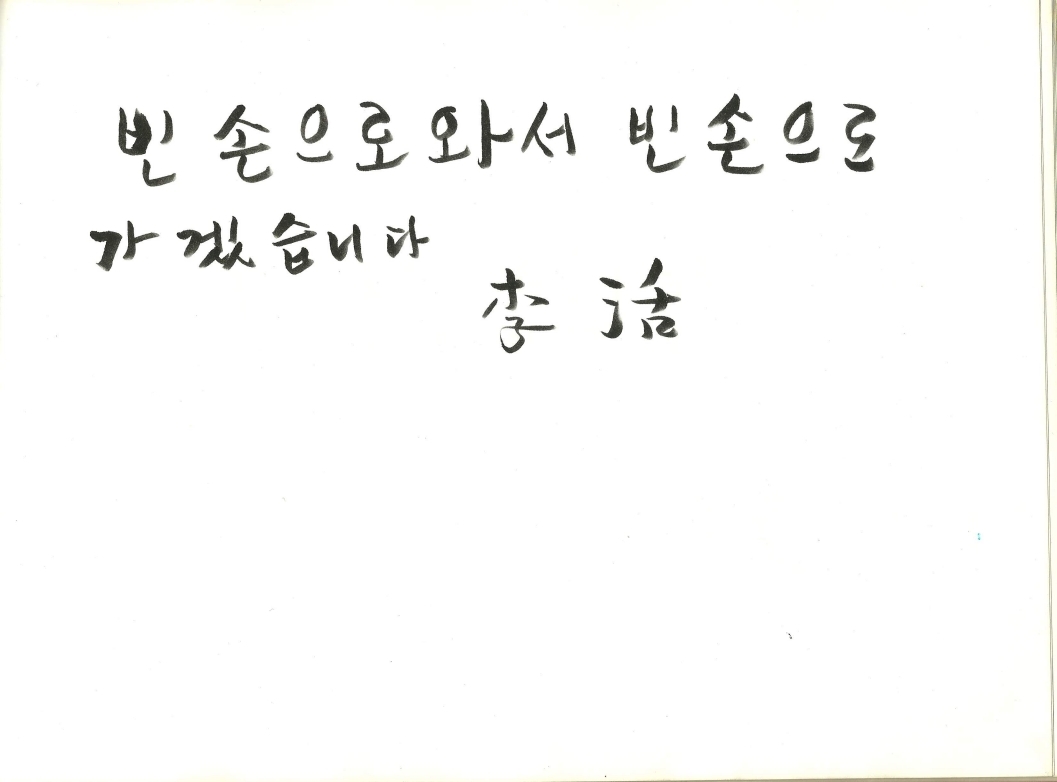 빈 손으로 와서 빈 손으로
가겠습니다
李 活